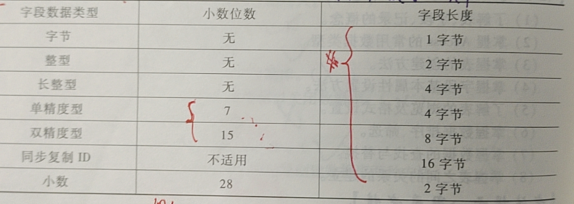 字段数据类型 小数位数 字段长度
字节 无 1 字节
整型 无 2 字节
长整型 无 4 字节
单精度型 7 4 字节
双精度型 15 8 字节
同步复制 ID 不适用 16 字节
小数 28 2 字节